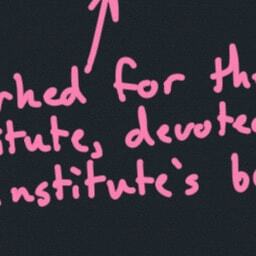 rked for th
itute, devote
nstitute's b